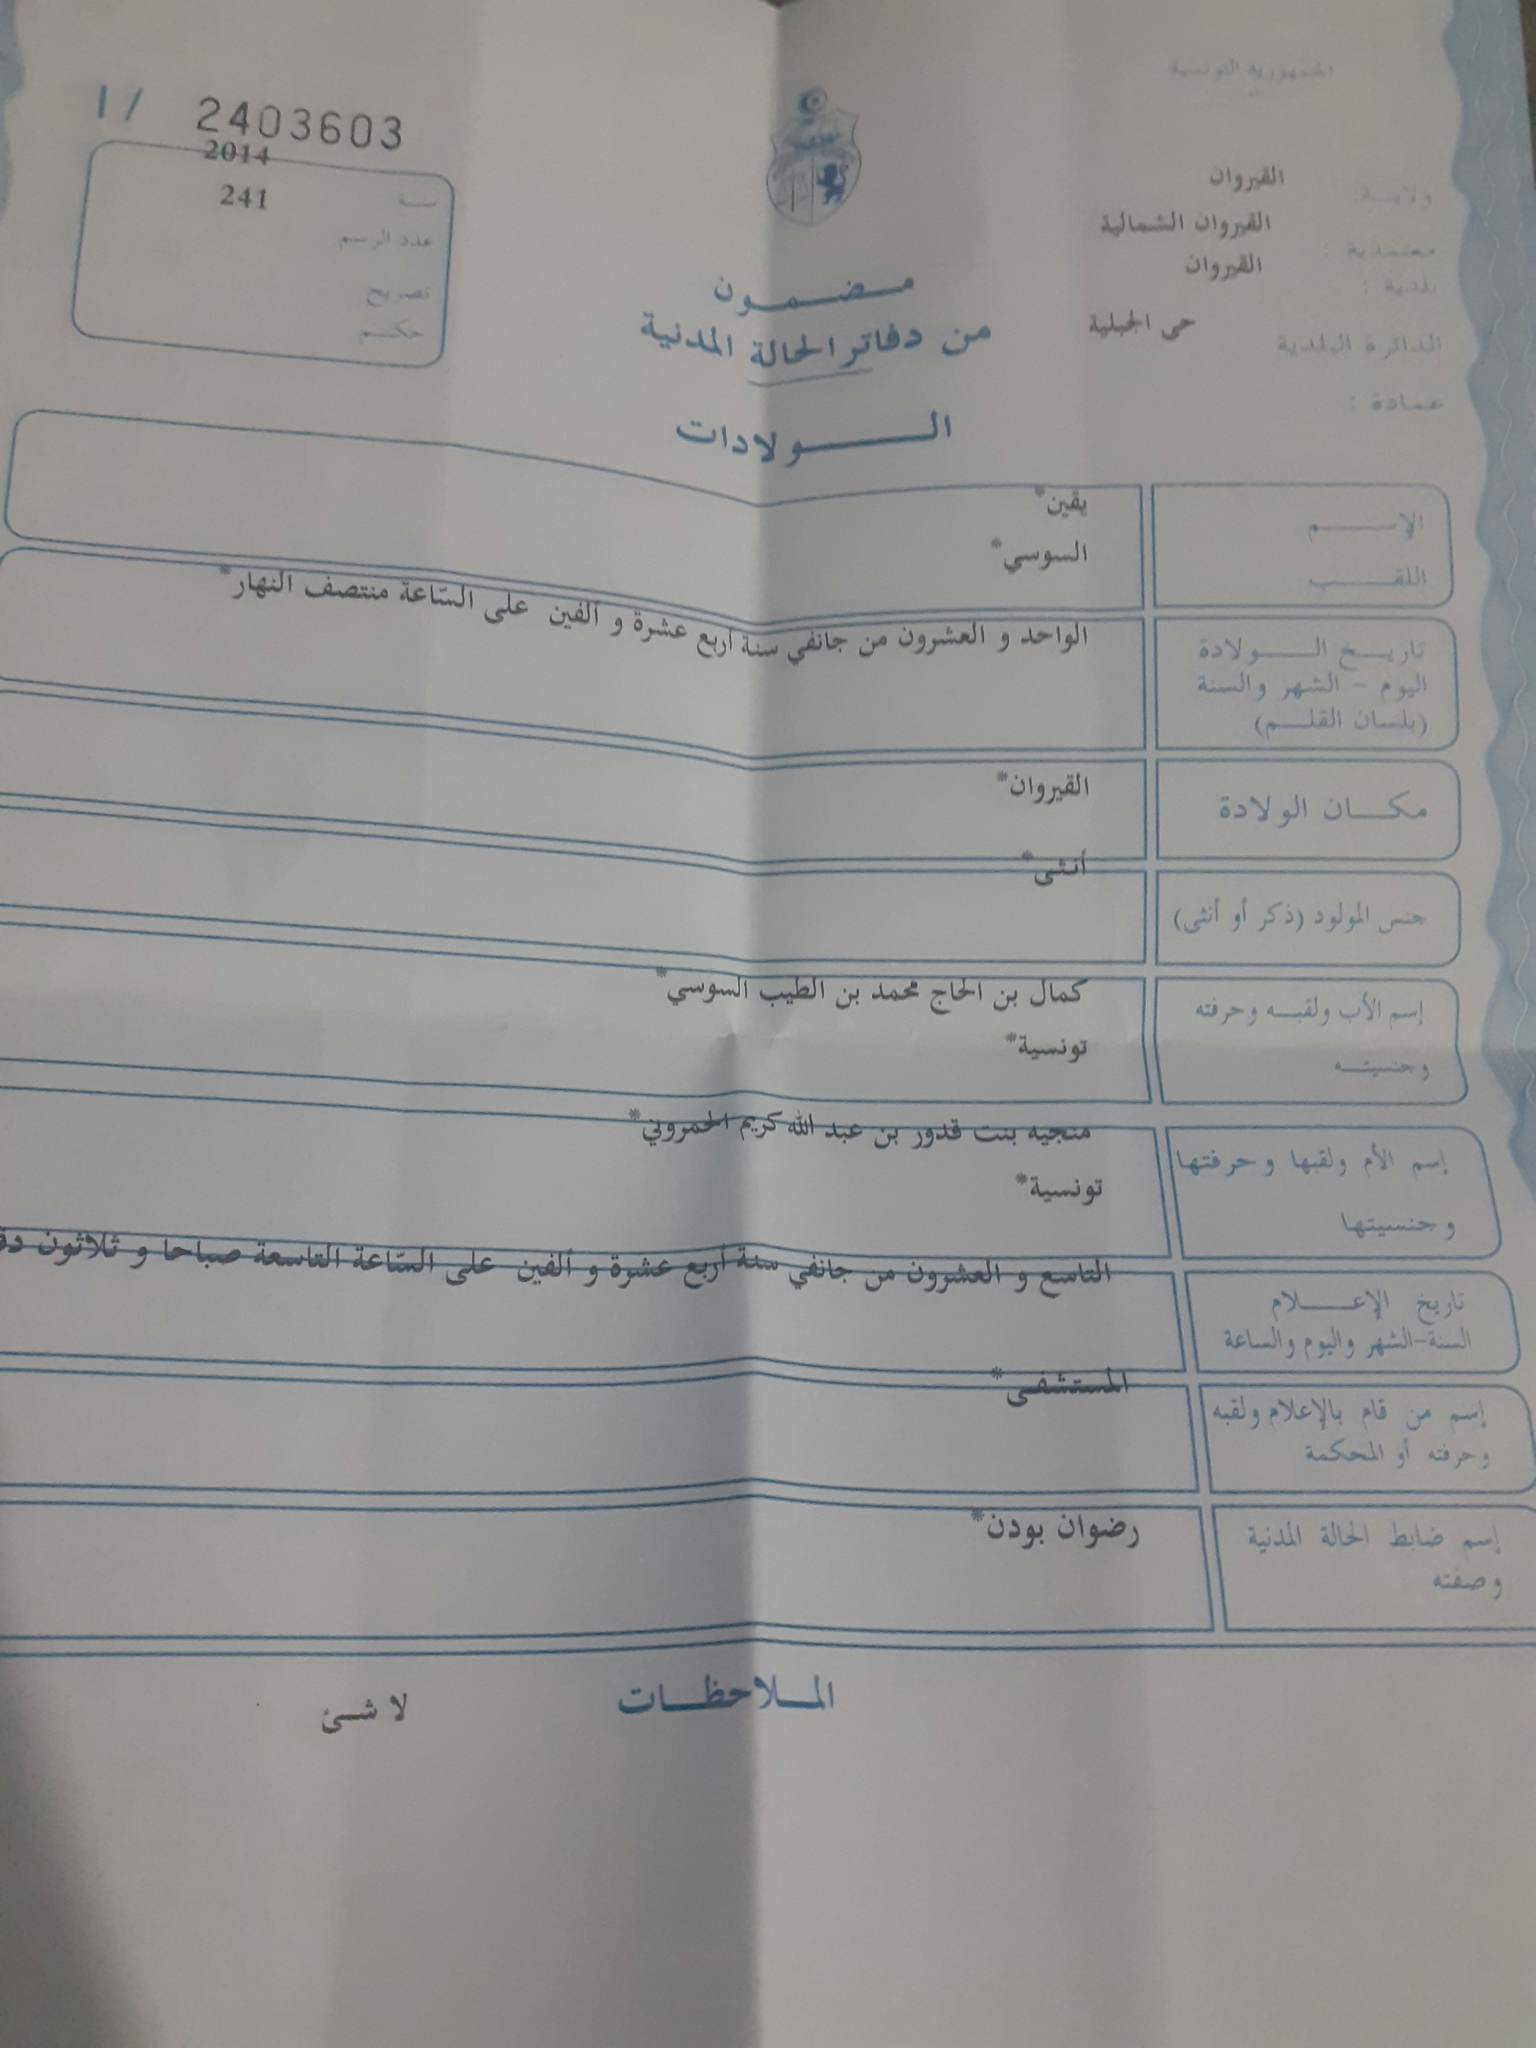 الجمهورية التونسية
I / 2403603
ولايــة القيروان
معتمدية : القيروان الشمالية
بلدية : القيروان
الدائرة البلدية حي الجبلية
عمادة :
سنــة 2014
عدد الرسم 241
تصريح
حكــم
مـضـمـون
من دفاتر الحالة المدنية
الـــولادات
الإســـم يقين*
اللقـــب السوسي*
تاريـخ الـــولادة
اليوم - الشهر والسنة
(بلسان القلـم)
الواحد و العشرون من جانفي سنة أربع عشرة و ألفين على السّاعة منتصف النهار*
مكـــان الولادة القيروان*
جنس المولود (ذكر أو أنثى) أنثى*
إسم الأب ولقبـه وحرفته
وجنسيتــه
كمال بن الحاج محمد بن الطيب السوسي*
تونسية*
إسم الأم ولقبها وحرفتها
وجنسيتها
منجيه بنت قدور بن عبد الله كريم الحمروني*
تونسية*
تاريخ الإعـــلام
السنة-الشهر واليوم والساعة
التاسع و العشرون من جانفي سنة أربع عشرة و ألفين على السّاعة التاسعة صباحا و ثلاثون
إسم من قام بالإعلام ولقبه
وحرفته أو المحكمة
المستشفى*
إسم ضابط الحالة المدنية
وصفته
رضوان بودن*
المـلاحظـات
لا شئ